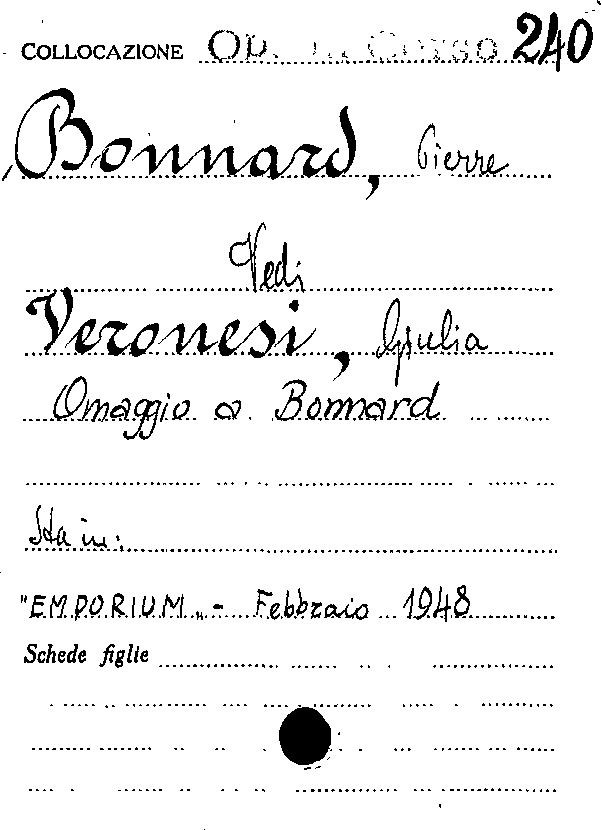 COLLOCAZIONE Op. in Corso 240
Bonnard, Pierre
Vedi
Veronesi, Giulia
Omaggio a Bonnard
Sta in:
"EMPORIUM" - Febbraio 1948
Schede figlie